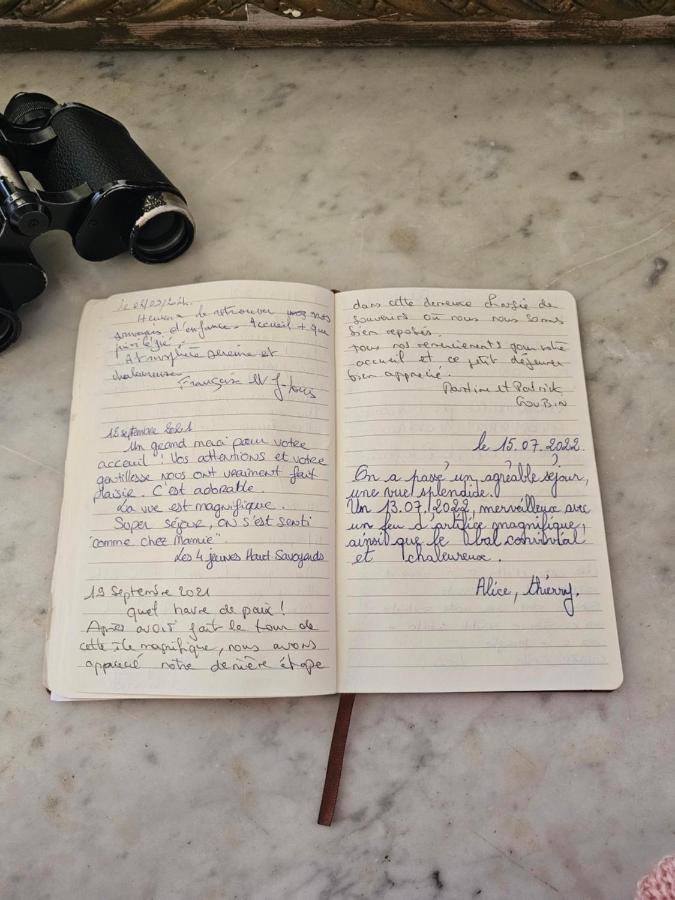 Heureux de retrouver nos
souvenirs d'enfance. Accueil + que
privilégié,
Atmosphère sereine et
chaleureuse
Françoise et
12 septembre 2021
Un grand merci pour votre
accueil ! Vos attentions et votre
gentillesse nous ont vraiment fait
plaisir. C'est adorable.
La vue est magnifique.
Super séjour, on s'est senti
"comme chez Mamie".
Les 4 jeunes Haut Savoyards
19 Septembre 2021
quel havre de paix !
Après avoir fait le tour de
cette île magnifique, nous avons
apprécié notre dernière étape
dans cette demeure chargée de
souvenirs où nous nous sommes
bien reposés.
tous nos remerciements pour votre
accueil et ce petit déjeuner
bien apprécié.
Martine et Patrick
GOUBIN
le 15.07.2022.
On a passé un agréable séjour,
une vue splendide.
Un 13.07.2022, merveilleux avec
un feu d'artifice magnifique,
ainsi que le bal convivial
et chaleureux.
Alice, thierry.